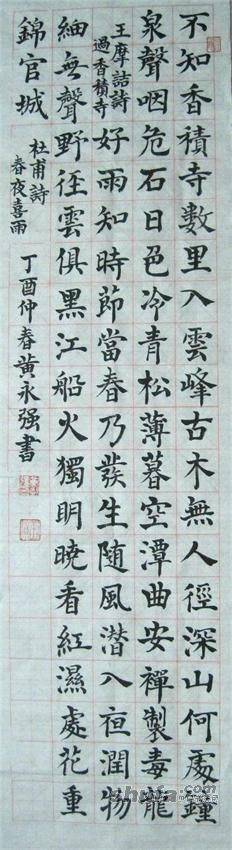 不知香積寺數里入雲峰古木無人徑深山何處鐘
泉聲咽危石日色冷青松薄暮空潭曲安禪製毒龍
王摩詰詩
過香積寺
好雨知時節當春乃發生随風潛入亱潤物
細無聲野径雲俱黑江船火獨明曉看紅濕處花重
錦官城
杜甫詩
春夜喜雨
丁酉仲春黄永强書